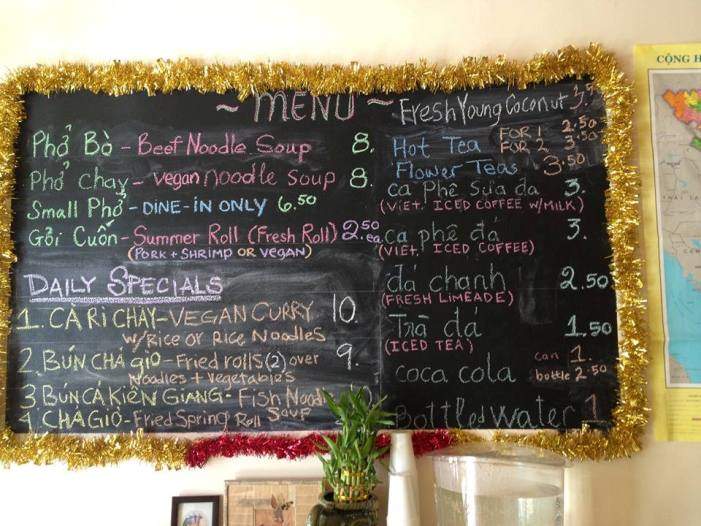 ~ MENU ~
Phở Bò - Beef Noodle Soup 8.
Phở Chay - vegan noodle soup 8.
Small Phở - DINE-IN ONLY 6.50
Gỏi Cuốn - Summer Roll (Fresh Roll) 2.50 ea.
(PORK + SHRIMP OR VEGAN)
DAILY SPECIALS
1. CÀ RI CHAY - VEGAN CURRY 10.
w/ Rice or Rice Noodles
2. BÚN CHẢ GIÒ - Fried rolls (2) over 9.
Noodles + Vegetables
3 BÚN CÁ KIÊN GIANG - Fish Nood
Soup
CHẢ GIÒ - Fried Spring Roll
Fresh Young Coconut
Hot Tea FOR 1 2.50
FOR 2 3.50
Flower Teas 3.50
ca phê sữa đa 3.
(VIET. ICED COFFEE W/MILK)
ca phê đá 3.
(VIET. ICED COFFEE)
đá chanh 2.50
(FRESH LIMEADE)
Trà đá 1.50
(ICED TEA)
coca cola can 1.
bottle 2.50
Bottled water 1
CỘNG H